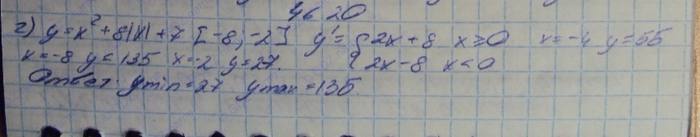 46 20
2) y=x²+8|x|+7 [-8;-2] y'= { 2x+8 x≥0 x=-4 y=55
x=-8 y=135 x=-2 y=27. { 2x-8 x<0
Ответ: ymin=27 ymax=135